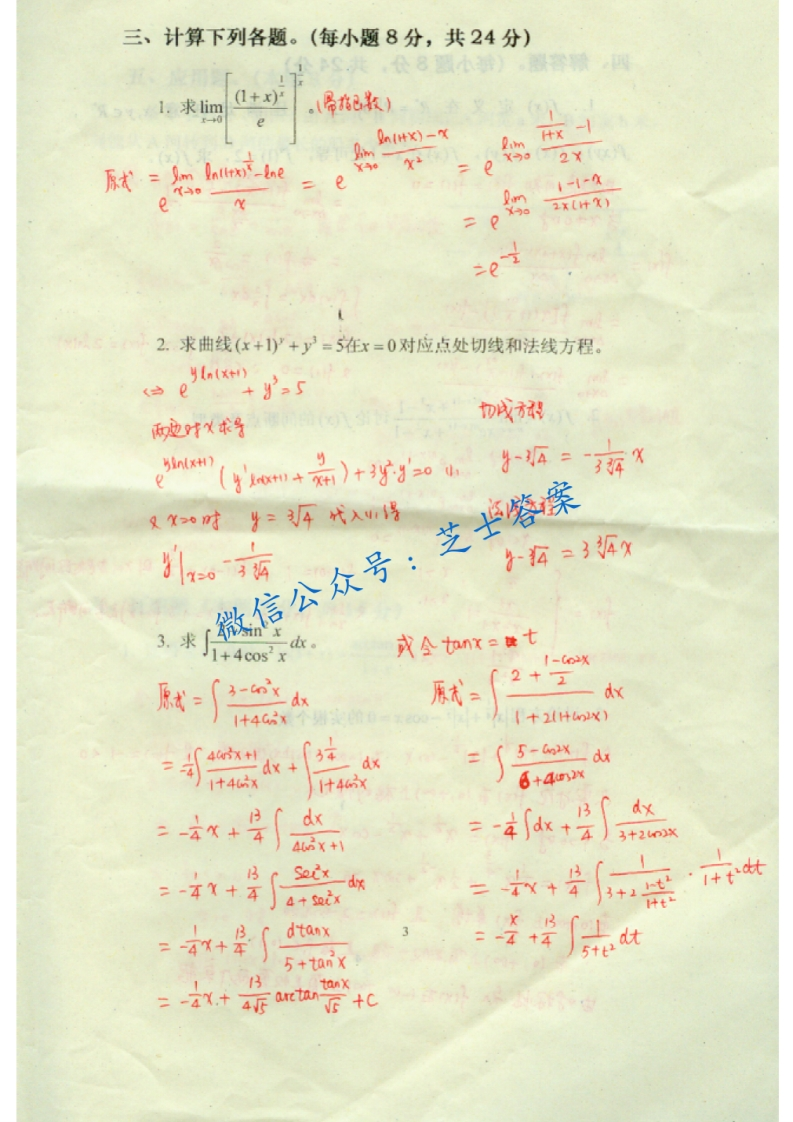 三、计算下列各题。(每小题 8 分，共 24 分)
1. 求 lim_{x→0} [ (1+x)^{1/x} / e ]^{1/x} 。(幂指函数)
原式 = e^{lim_{x→0} (ln(1+x)^{1/x} - lne)/x} = e^{lim_{x→0} (ln(1+x) - x)/x²} = e^{lim_{x→0} (1/(1+x) - 1)/2x}
= e^{lim_{x→0} (1-1-x)/(2x(1+x))}
= e^{-1/2}
2. 求曲线 (x+1)^y + y³ = 5在x = 0对应点处切线和法线方程。
⇔ e^{y ln(x+1)} + y³ = 5
两边对x求导
e^{y ln(x+1)} (y' ln(x+1) + y/(x+1)) + 3y²·y' = 0 (1)
又 x=0时 y = ³√4 代入(1)得
y'|_{x=0} - 1/(3 ³√4)
切线方程
y - ³√4 = - 1/(3 ³√4) x
法线方程
y - ³√4 = 3 ³√4 x
微信公众号：芝士答案
3. 求 ∫ sin² x / (1+4cos² x) dx 。
原式 = ∫ (3-cos²x)/(1+4cos²x) dx
= -1/4 ∫ (4cos²x+1)/(1+4cos²x) dx + ∫ (3 1/4)/(1+4cos²x) dx
= -1/4 x + 13/4 ∫ dx/(4cos²x+1)
= -1/4 x + 13/4 ∫ sec²x/(4+sec²x) dx
= -1/4 x + 13/4 ∫ dtanx/(5+tan²x)
= -1/4 x + 13/(4√5) arctan tanx/√5 + C
或令 tanx = t
原式 = ∫ (2 + (1-cos2x)/2)/(1+2(1+cos2x)) dx
= ∫ (5-cos2x)/(6+4cos2x) dx
= -1/4 ∫dx + 13/4 ∫ dx/(3+2cos2x)
= -1/4 x + 13/4 ∫ 1/(3+2 (1-t²)/(1+t²)) · 1/(1+t²) dt
= -x/4 + 13/4 ∫ 1/(5+t²) dt
3